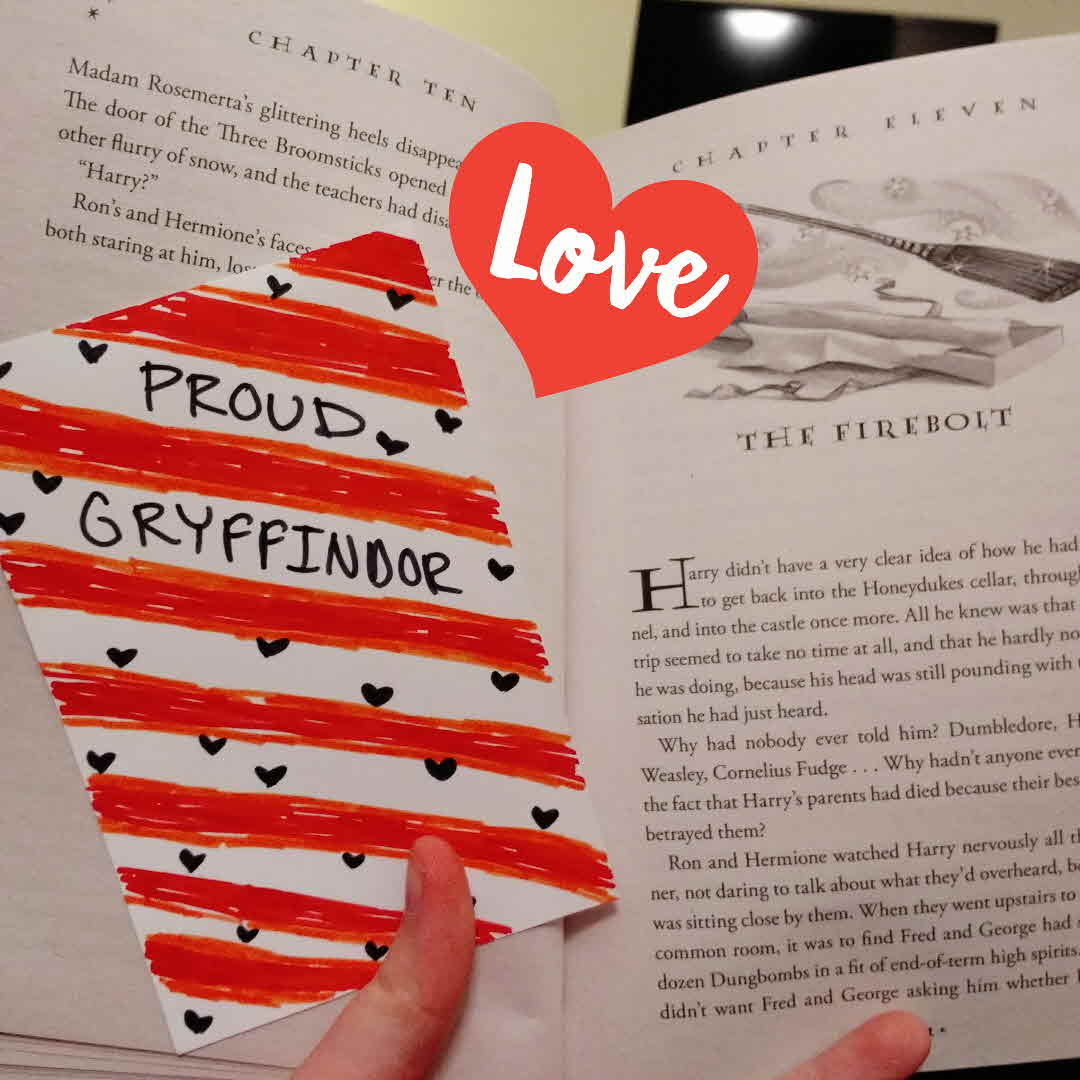 CHAPTER TEN
Madam Rosemerta's glittering heels
The door of the Three Broomsticks opened
other flurry of snow, and the teachers had
"Harry?"
Ron's and Hermione's faces
both staring at him,
Love
PROUD
GRYFFINDOR
CHAPTER ELEVEN
THE FIREBOLT
Harry didn't have a very clear idea of how he had
to get back into the Honeydukes cellar,
nel, and into the castle once more. All he knew was that
trip seemed to take no time at all, and that he hardly
he was doing, because his head was still pounding with
sation he had just heard.
Why had nobody ever told him? Dumbledore,
Weasley, Cornelius Fudge . . . Why hadn't anyone ever
the fact that Harry's parents had died because their
betrayed them?
Ron and Hermione watched Harry nervously all
ner, not daring to talk about what they'd overheard,
was sitting close by them. When they went upstairs to
common room, it was to find Fred and George had
dozen Dungbombs in a fit of end-of-term high spirits.
didn't want Fred and George asking him whether